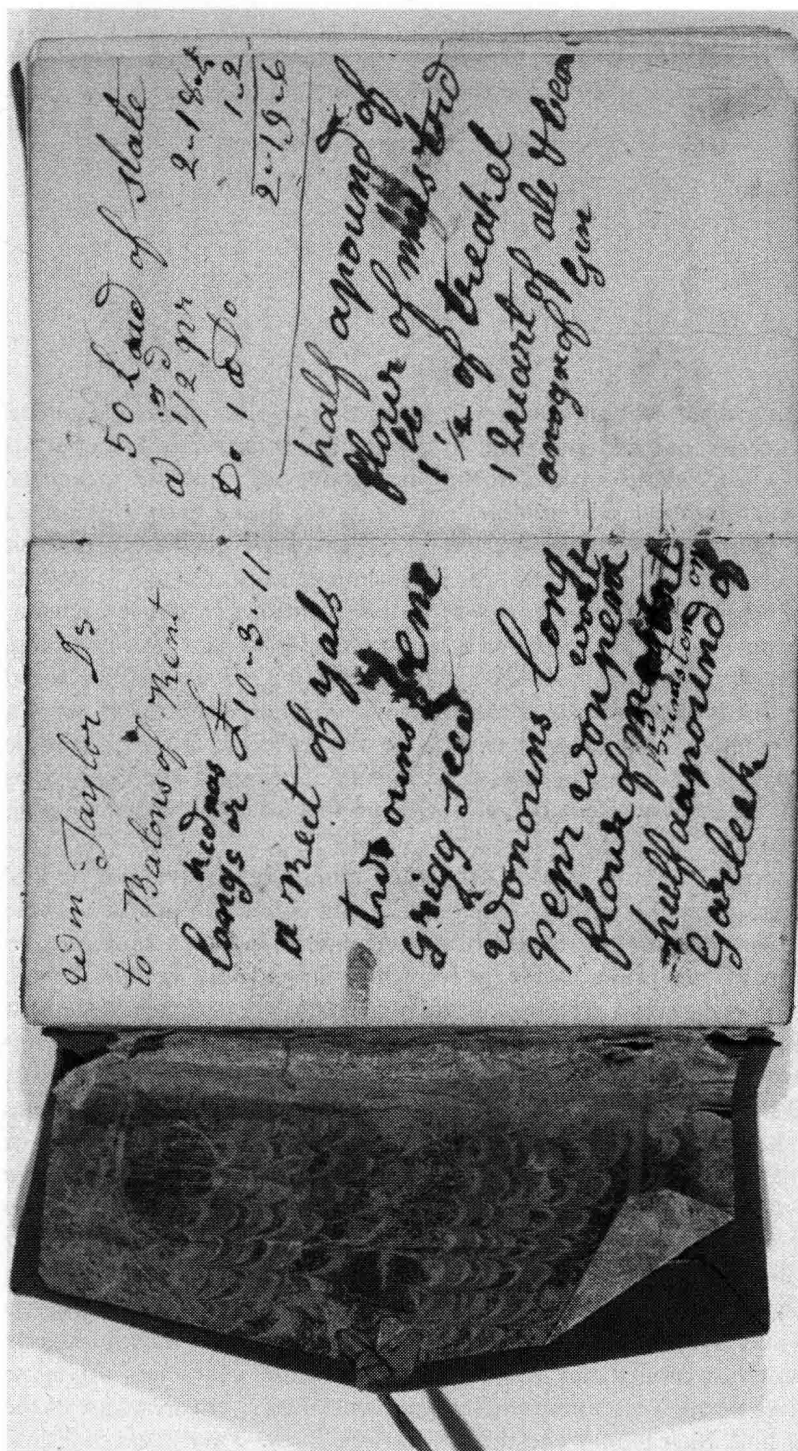 Wm Taylor Dr
to Balons of Rent
hednas
Longs er £10-3-11
a Recet of yals
two ouns fene
Grigg seed
wonouns long
pepr won penewost
flour of
Brimston on
half aapound of
Garleek
50 Load of slate
a 1/2 pr 2-18-4
Do 1 d Do 1-2
2-19-6
half apound of
flour of mustord
lb
1 1/2 of treakel
1 Quart of ale &
of Gin